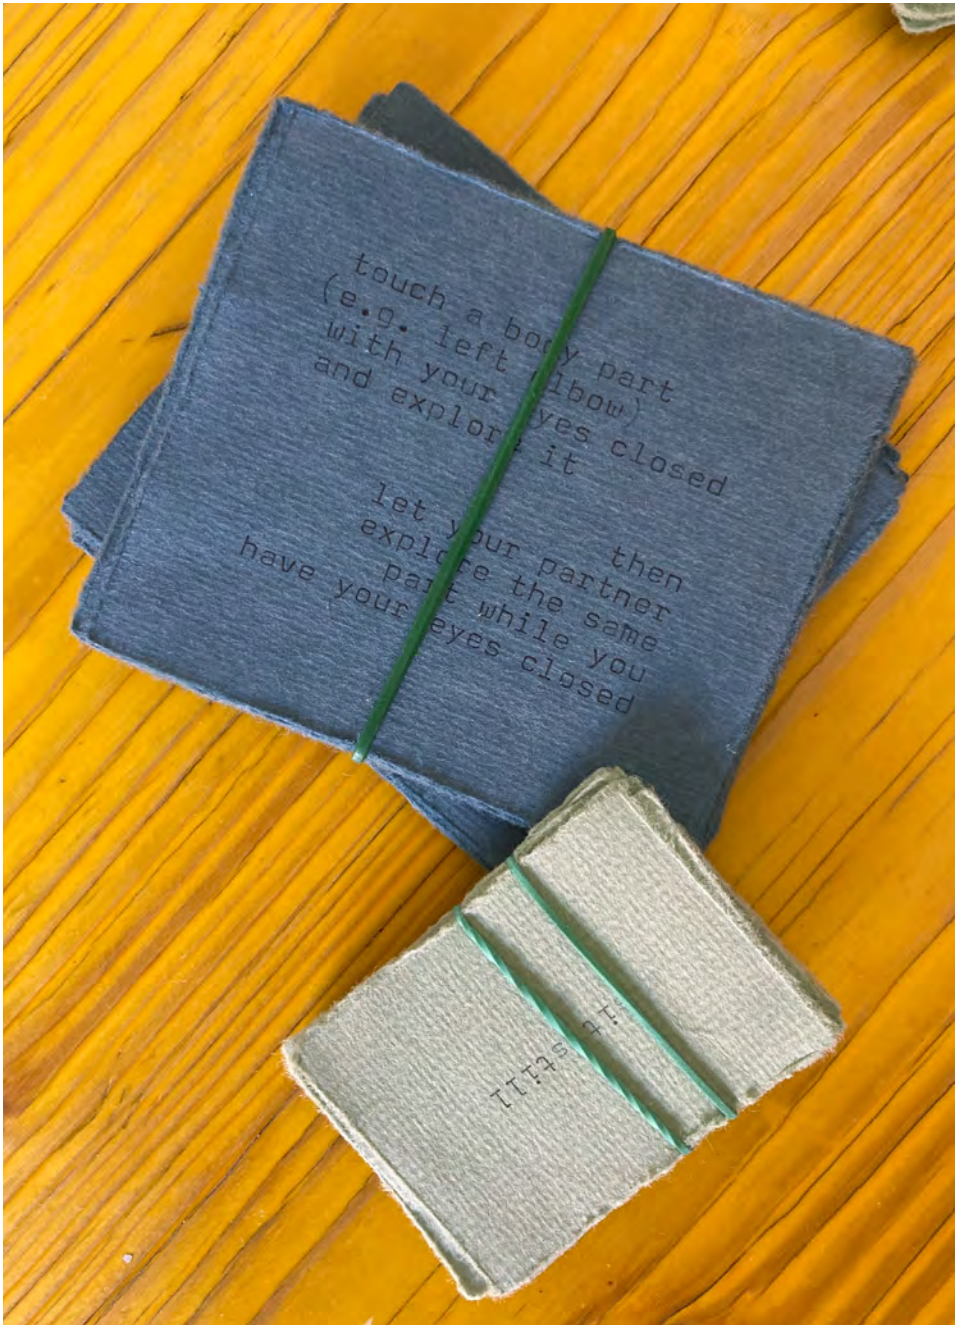 touch a body part
(e.g. left elbow)
with your eyes closed
and explore it
then
let your partner
explore the same
part while you
have your eyes closed
sit still